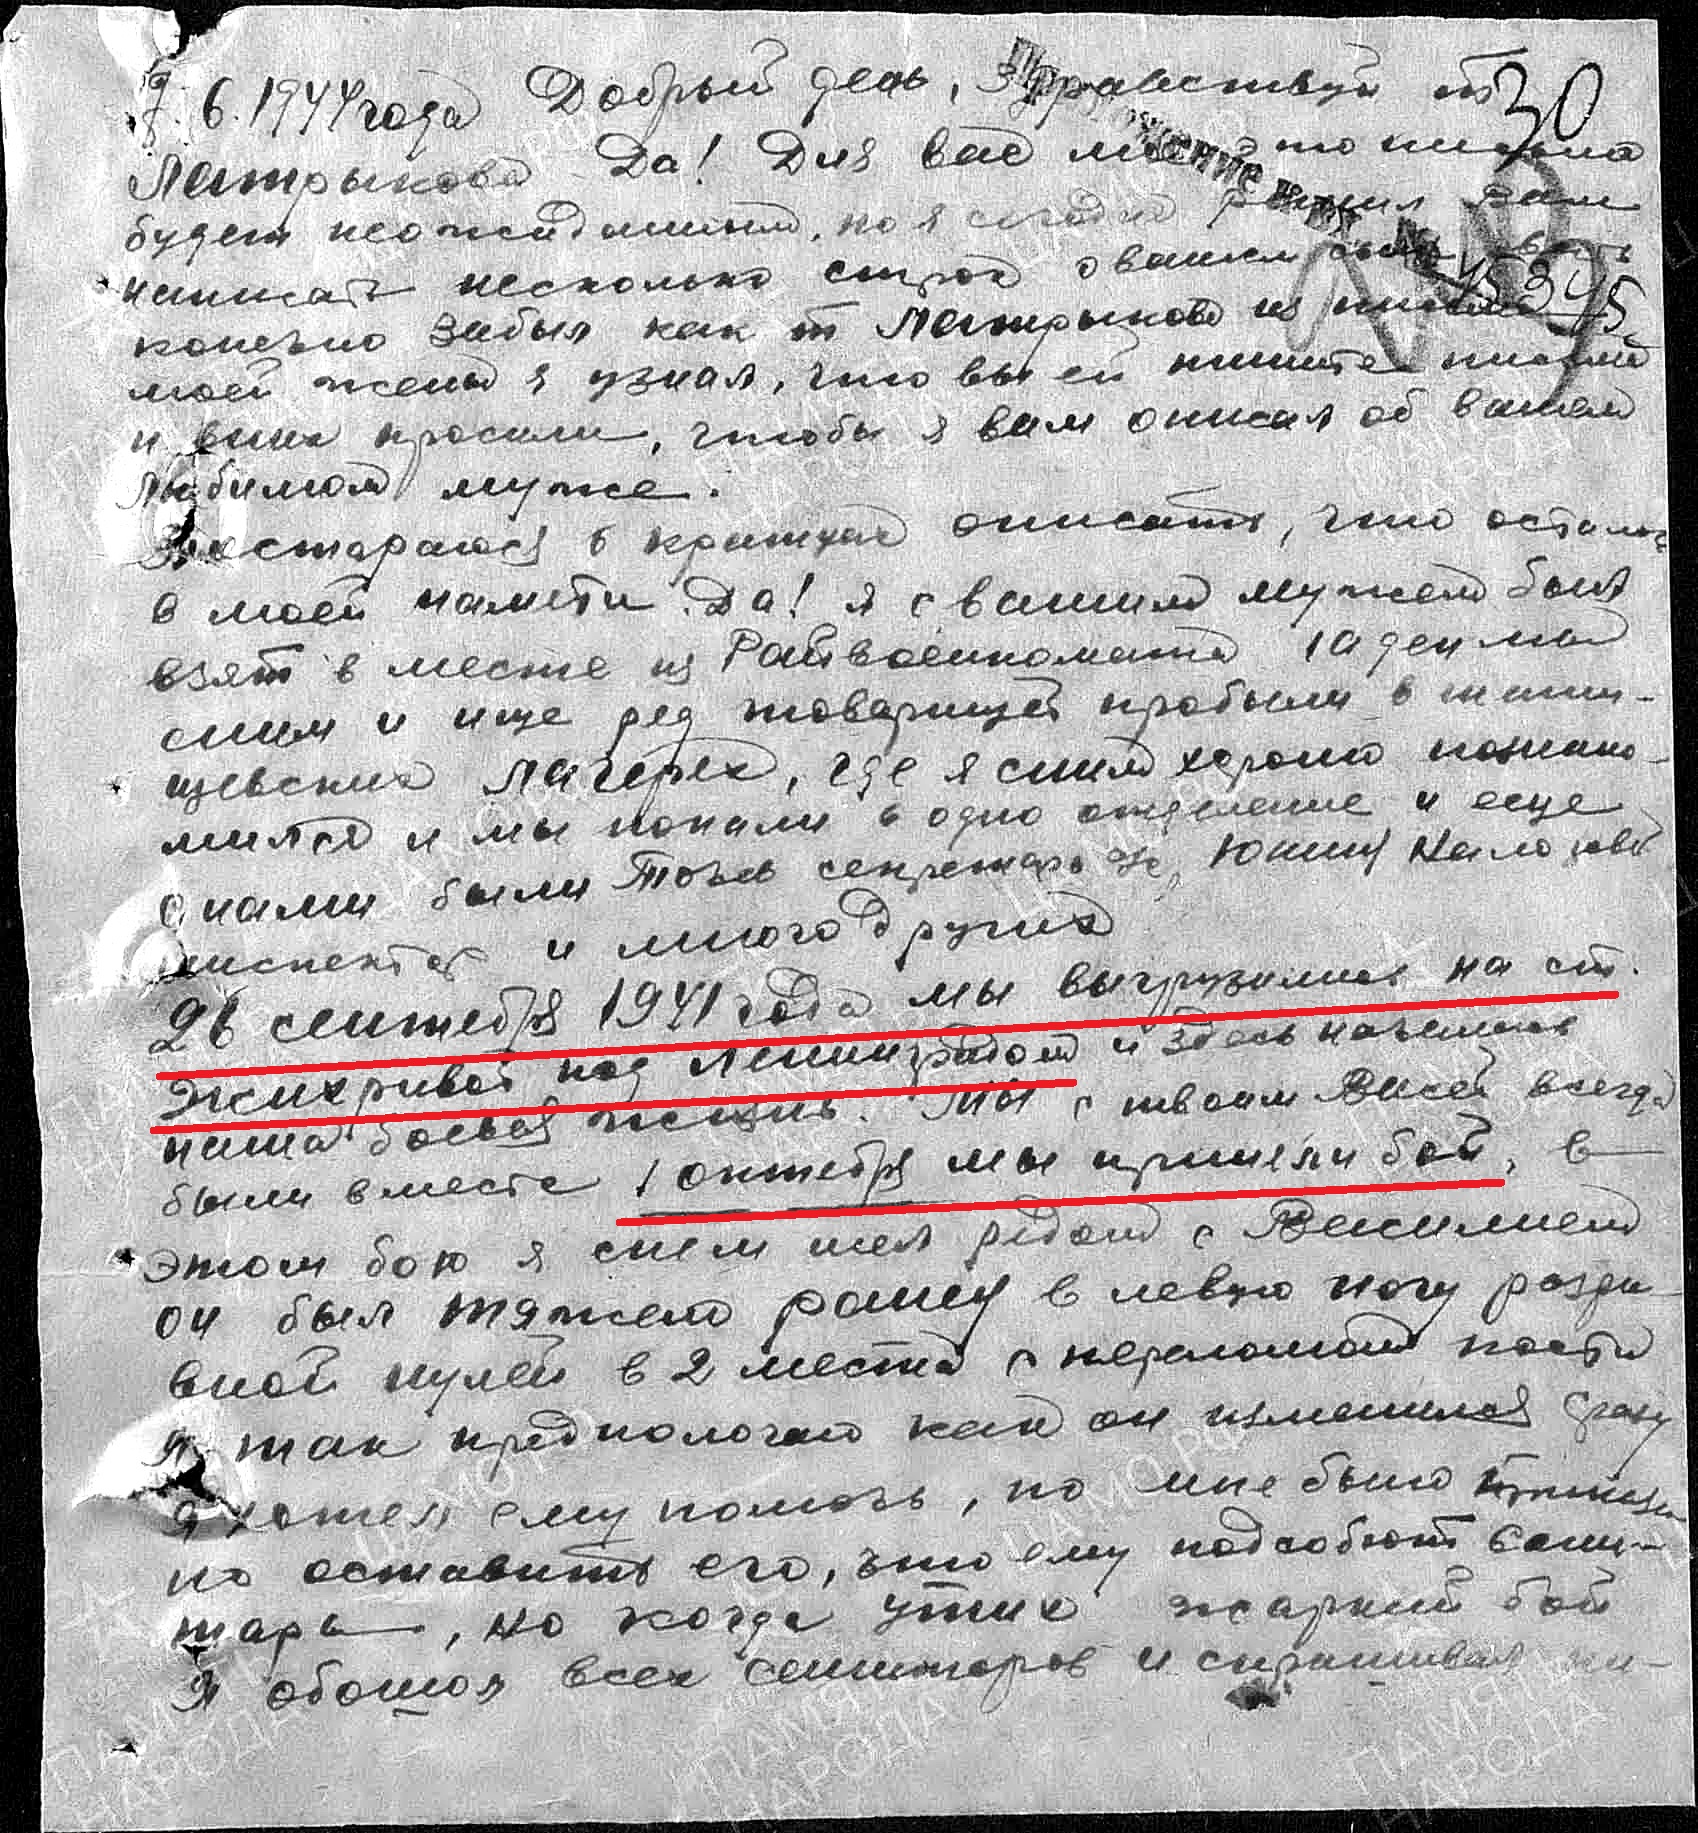 7. 6. 1944 года Добрый день, Здравствуй т 30
Патрыкова Да! Для вас мое это письмо
будет неожиданным, но я сегодня решил Вам
написать несколько строк о вашем
конечно забыл как т Патрыкова из письма
моей жены я узнал, что вы ей пишите письма
и в них просили, чтобы я вам описал об вашем
любимом муже.
Постараюсь в кратцах описать, что осталось
в моей памяти. Да! я с вашим мужем был
взят в месте из Райвоенкомата мы
сним и еще ряд товарищей пробыли в
лагерях, где я сним хорошо познако-
мился и мы попали в одно отделение и еще
с нами были секретарь Налоговой
инспектор и много других
26 сентября 1941 года мы выгрузились на ст.
Жихривой под Ленинградом и здесь началась
наша боевая жизнь. Мы с твоим Васей всегда
были вместе 1 октября мы приняли бой, в
этом бою я снем шел рядом с Василием
он был тяжело ранен в левую ногу разры
вной пулей в 2 места с переломом кости
Я так предпологаю как он изменился сразу
я хотел ему помочь, но мне было
но оставить его, что ему подсобют сани-
тары, но когда утих жаркий бой
Я обошол всех санитаров и спрашивал ни-
ПАМЯТЬ НАРОДА